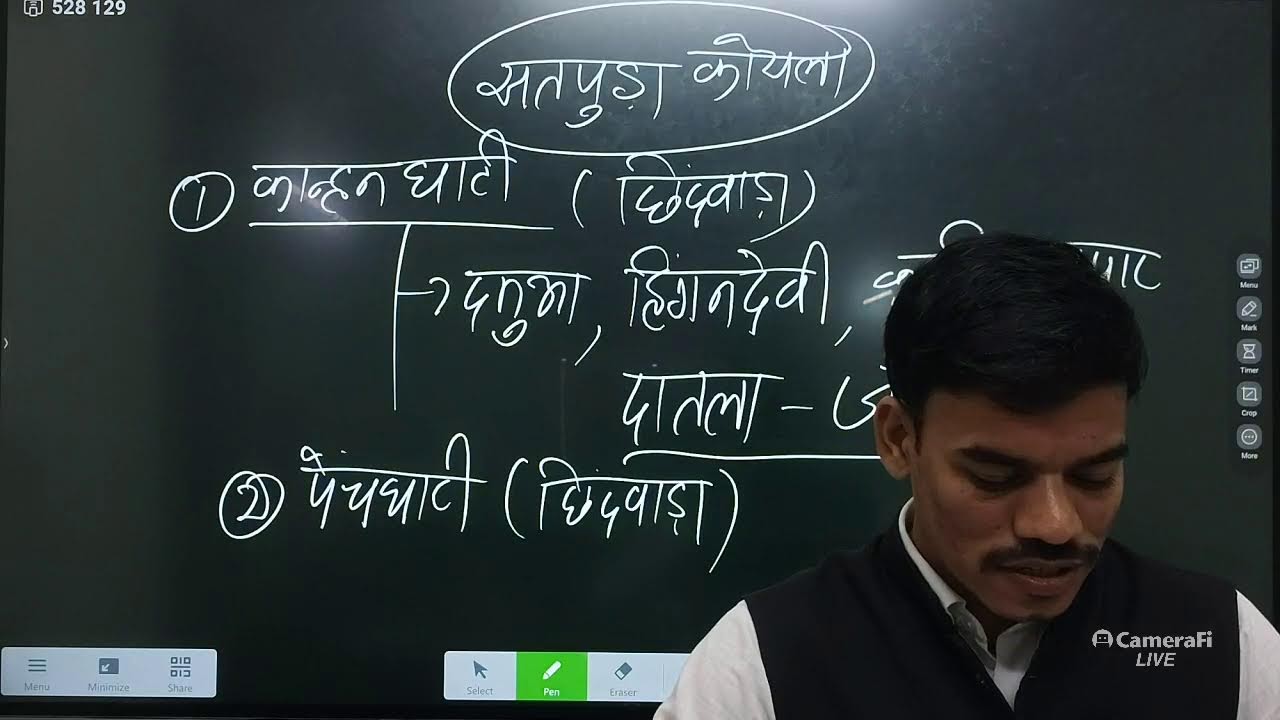 528 129
सतपुड़ा कोयला
① कान्हन घाटी (छिंदवाड़ा)
→ दमुआ, हिंगनदेवी,
दातला -
② पेंचघाटी (छिंदवाड़ा)
Menu
Mark
Timer
Crop
More
CameraFi
LIVE
Menu Minimize Share Select Pen Eraser